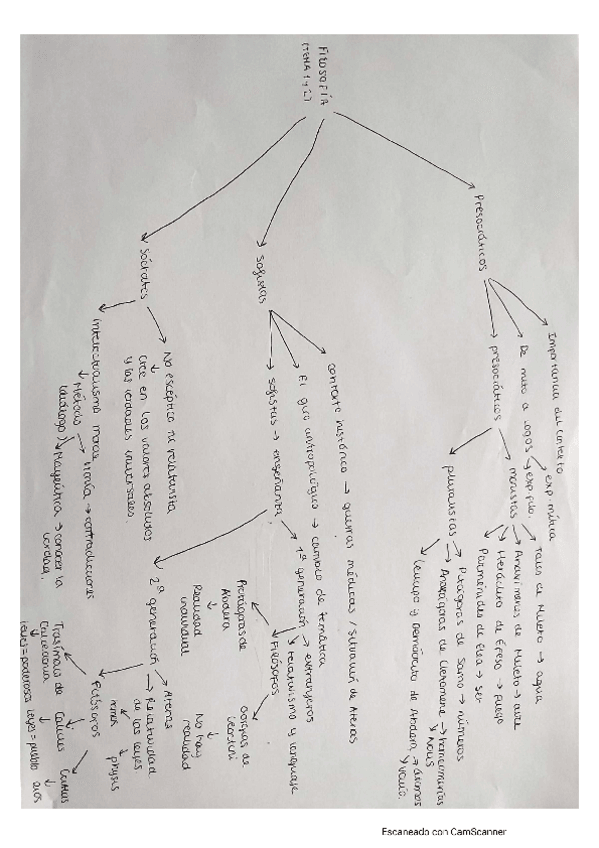 Filosofía
(TEMA 1 y 2)
Presocráticos
Importancia del contexto
De mito a logos
exp. mítica
exp. filo.
presocráticos
monistas
Tales de Mileto → agua
Anaxímenes de Mileto → aire
Heráclito de Éfeso → fuego
Parménides de Elea → ser
pluralistas
Pitágoras de Samo → números
Anaxágoras de Clazomene → homeomerías
Nous
Leucipo y Demócrito de Abdera → átomos
vacío.
Sofistas
contexto histórico → guerras médicas / situación de Atenas
El giro antropológico → cambio de temática
sofistas → enseñanza
1ª generación → extranjeros
relativismo y lenguaje
Filósofos
Protágoras de
Abdera
Realidad
individual
Gorgias de
Leontini
No hay
realidad
2ª generación
Atenas
Relatividad
de las leyes
nomos
physis
Filósofos
Trasímaco de
Calcedonia
leyes = poderosos
Calicles
leyes = pueblo
Critias
dios
Sócrates
No escéptico ni relativista
cree en los valores absolutos
y las verdades universales.
intelectualismo moral
Método
(diálogo)
Ironía → contradicciones
Mayéutica → conocer la
verdad.
Escaneado con CamScanner